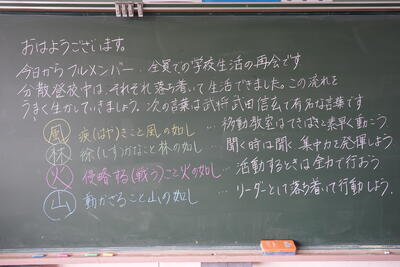 おはようございます。
今日からフルメンバー、全員での学校生活の再会です
分散登校中は、それぞれ落ち着いて生活できました。この流れを
うまく生かしていきましょう。次の言葉は武将武田信玄で有名な言葉です
風 疾(はや)きこと風の如し …移動教室はてきぱきと素早く動こう
林 徐(しず)かなこと林の如し …聞く時は聞く、集中力を発揮しよう
火 侵略する(戦う)こと火の如し …活動するときは全力で行おう
山 動かざること山の如し …リーダーとして落ち着いて行動しよう。